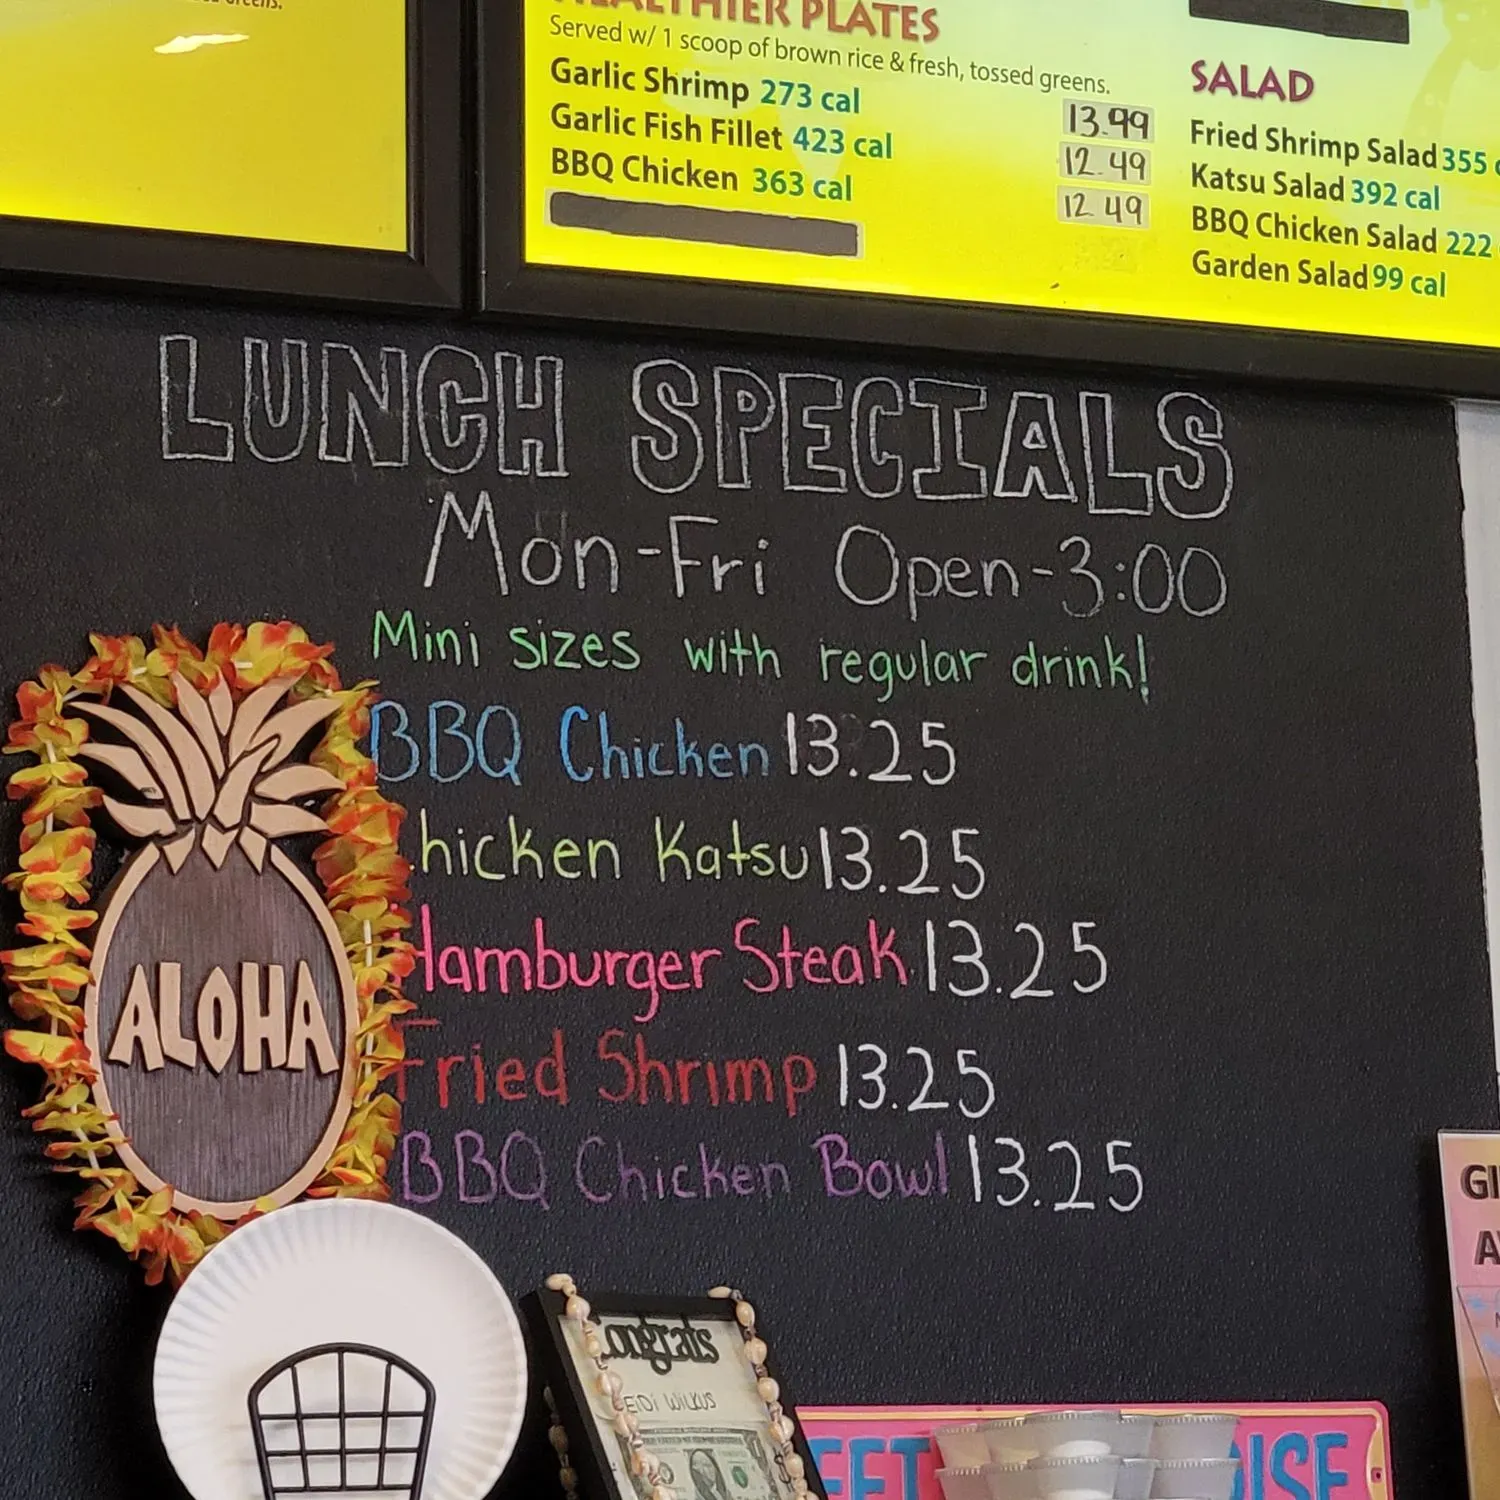 HEALTHIER PLATES
Served w/ 1 scoop of brown rice & fresh, tossed greens.
Garlic Shrimp 273 cal 13.99
Garlic Fish Fillet 423 cal 12.49
BBQ Chicken 363 cal 12.49
SALAD
Fried Shrimp Salad 355
Katsu Salad 392 cal
BBQ Chicken Salad 222
Garden Salad 99 cal
LUNCH SPECIALS
Mon-Fri Open-3:00
Mini sizes with regular drink!
BBQ Chicken 13.25
Chicken Katsu 13.25
Hamburger Steak 13.25
Fried Shrimp 13.25
BBQ Chicken Bowl 13.25
ALOHA
Congrats